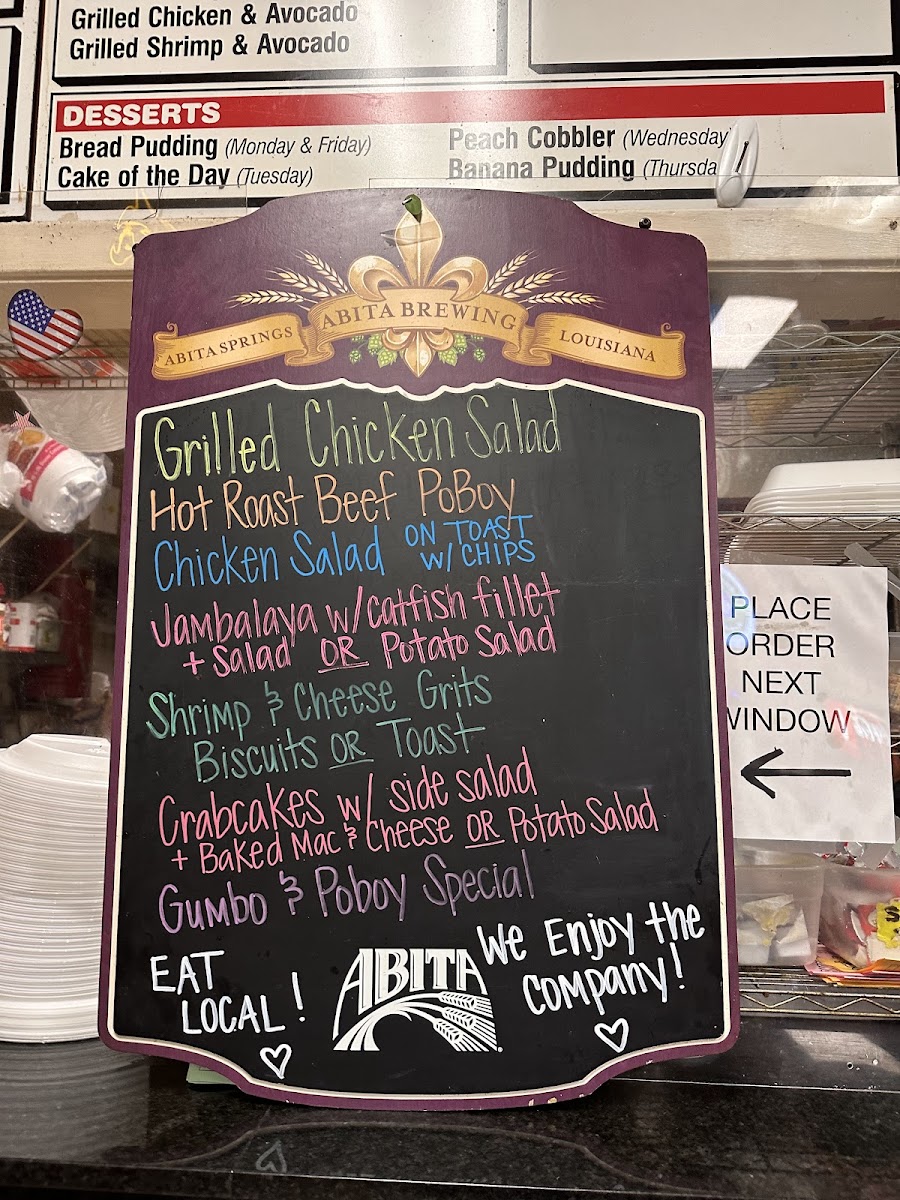 Grilled Chicken & Avocado
Grilled Shrimp & Avocado
DESSERTS
Bread Pudding (Monday & Friday)
Cake of the Day (Tuesday)
Peach Cobbler (Wednesday)
Banana Pudding (Thursda
ABITA SPRINGS ABITA BREWING LOUISIANA
Grilled Chicken Salad
Hot Roast Beef PoBoy
Chicken Salad ON TOAST
W/ CHIPS
Jambalaya w/catfish fillet
+ Salad OR Potato Salad
Shrimp & Cheese Grits
Biscuits OR Toast
Crabcakes w/ side salad
+ Baked Mac & Cheese OR Potato Salad
Gumbo & Poboy Special
EAT
LOCAL!
ABITA
We Enjoy the
Company!
PLACE
ORDER
NEXT
WINDOW